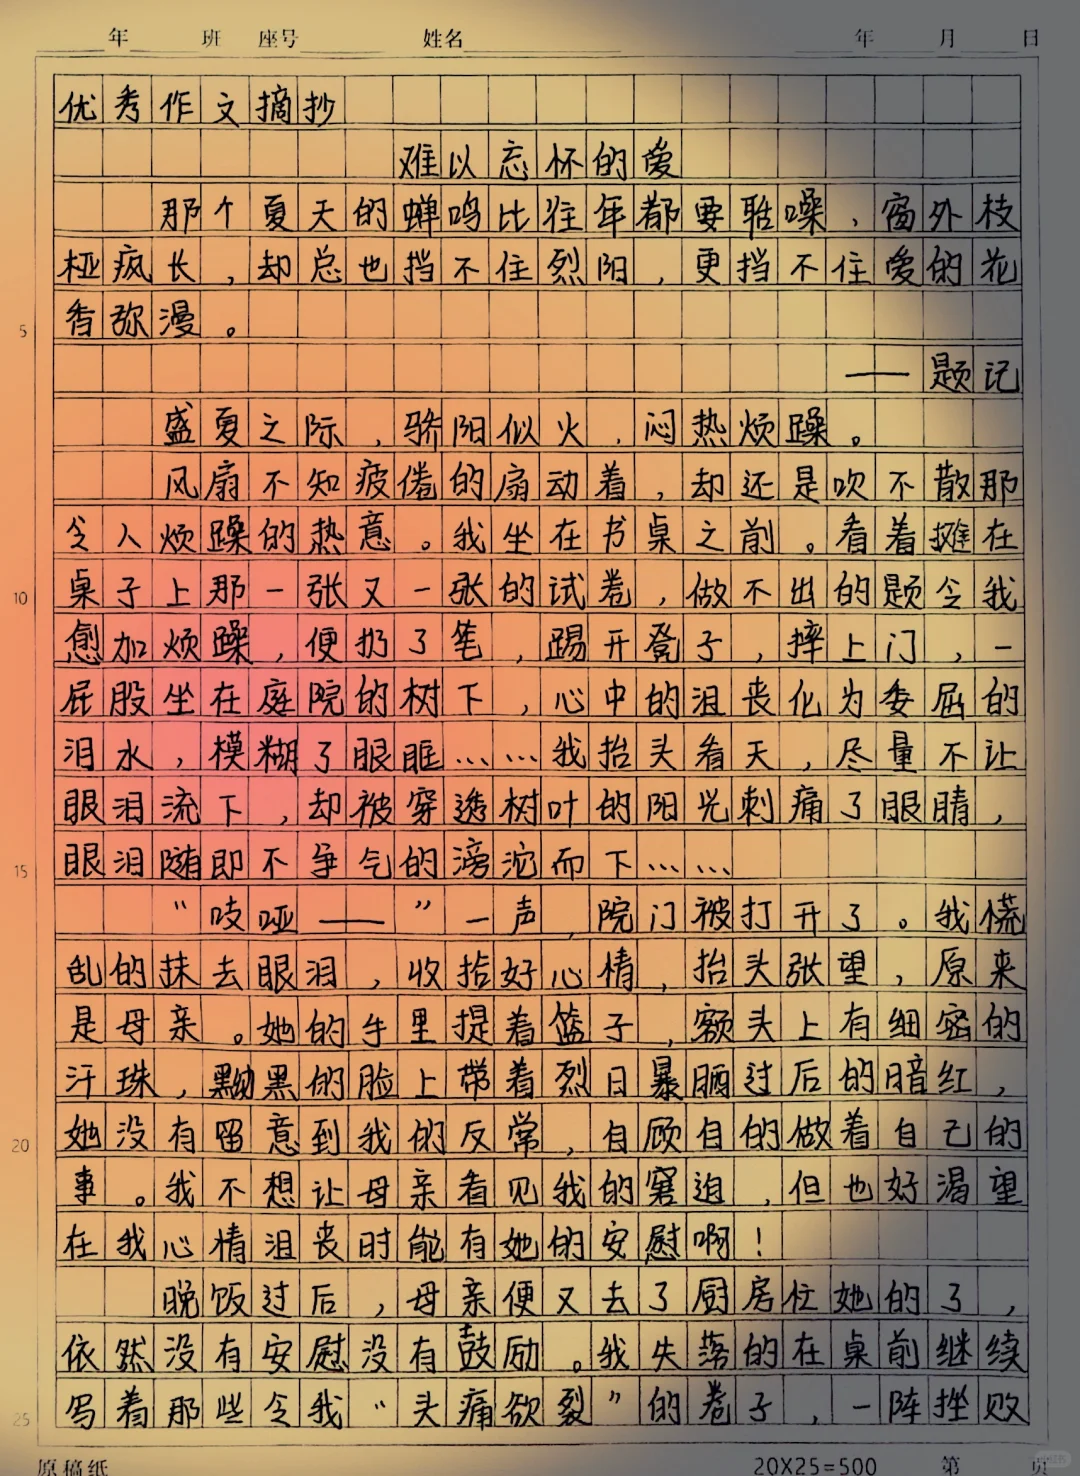 年 班 座号 姓名 年 月 日
优秀作文摘抄
难以忘怀的爱
那个夏天的蝉鸣比往年都要聒噪，窗外枝
桠疯长，却总也挡不住烈阳，更挡不住爱的花
香弥漫。
5
——题记
盛夏之际，骄阳似火，闷热烦躁。
风扇不知疲倦的扇动着，却还是吹不散那
令人烦躁的热意。我坐在书桌之前。看着摊在
桌子上那一张又一张的试卷，做不出的题令我
10
愈加烦躁，便扔了笔，踢开凳子，摔上门，一
屁股坐在庭院的树下，心中的沮丧化为委屈的
泪水，模糊了眼眶……我抬头看天，尽量不让
眼泪流下，却被穿透树叶的阳光刺痛了眼睛，
眼泪随即不争气的滂沱而下……
15
“吱哑——”一声，院门被打开了。我慌
乱的抹去眼泪，收拾好心情，抬头张望，原来
是母亲。她的手里提着篮子，额头上有细密的
汗珠，黝黑的脸上带着烈日暴晒过后的暗红，
她没有留意到我的反常，自顾自的做着自己的
20
事。我不想让母亲看见我的窘迫，但也好渴望
在我心情沮丧时能有她的安慰啊！
晚饭过后，母亲便又去了厨房忙她的了，
依然没有安慰没有鼓励。我失落的在桌前继续
写着那些令我“头痛欲裂”的卷子，一阵挫败
25
原稿纸 20X25=500 第 页